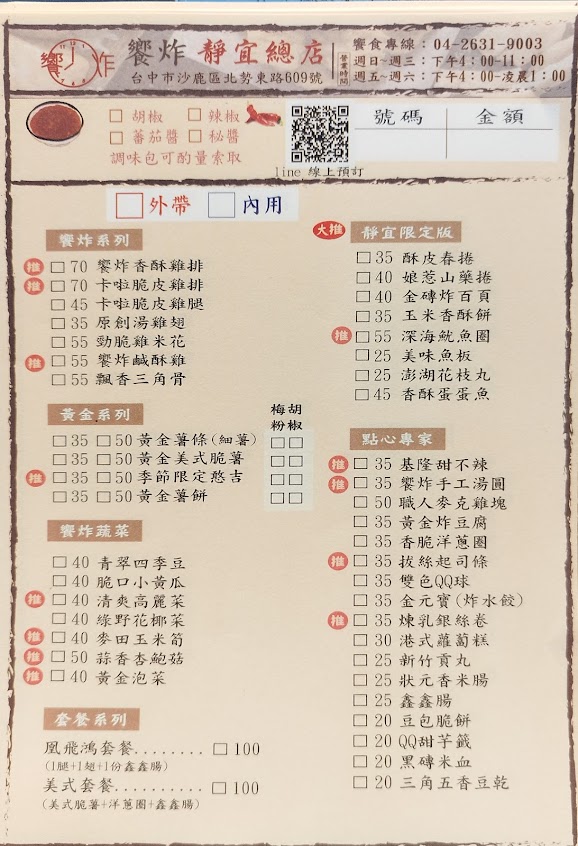 饗炸 靜宜總店
台中市沙鹿區北勢東路609號
營業時間
饗食專線：04-2631-9003
週日~週三：下午4：00-11：00
週五~週六：下午4：00-凌晨1：00
□ 胡椒 □ 辣椒
□ 蕃茄醬 □ 秘醬
調味包可酌量索取
line 線上預訂
號碼 金額
□外帶 □內用
饗炸系列
推 □ 70 饗炸香酥雞排
推 □ 70 卡啦脆皮雞排
□ 45 卡啦脆皮雞腿
□ 35 原創湯雞翅
□ 55 勁脆雞米花
推 □ 55 饗炸鹹酥雞
□ 55 飄香三角骨
黃金系列
梅粉 胡椒
□ 35 □ 50 黃金薯條(細薯) □ □
□ 35 □ 50 黃金美式脆薯 □ □
推 □ 35 □ 50 季節限定憨吉 □ □
□ 35 □ 50 黃金薯餅 □ □
饗炸蔬菜
□ 40 青翠四季豆
□ 40 脆口小黃瓜
推 □ 40 清爽高麗菜
□ 40 綠野花椰菜
推 □ 40 麥田玉米筍
推 □ 50 蒜香杏鮑菇
推 □ 40 黃金泡菜
套餐系列
鳳飛鴻套餐........ □ 100
(1腿+1翅+1份鑫鑫腸)
美式套餐.......... □ 100
(美式脆薯+洋蔥圈+鑫鑫腸)
大推 靜宜限定版
□ 35 酥皮春捲
□ 40 娘惹山藥捲
□ 40 金磚炸百頁
□ 35 玉米香酥餅
推 □ 55 深海魷魚圈
□ 25 美味魚板
□ 25 澎湖花枝丸
□ 45 香酥蛋蛋魚
點心專家
推 □ 35 基隆甜不辣
推 □ 35 饗炸手工湯圓
□ 50 職人麥克雞塊
□ 35 黃金炸豆腐
□ 35 香脆洋蔥圈
推 □ 35 拔絲起司條
□ 35 雙色QQ球
□ 35 金元寶(炸水餃)
推 □ 35 煉乳銀絲卷
□ 30 港式蘿蔔糕
□ 25 新竹貢丸
□ 25 狀元香米腸
□ 25 鑫鑫腸
□ 20 豆包脆餅
□ 20 QQ甜芋籤
□ 20 黑磚米血
□ 20 三角五香豆乾